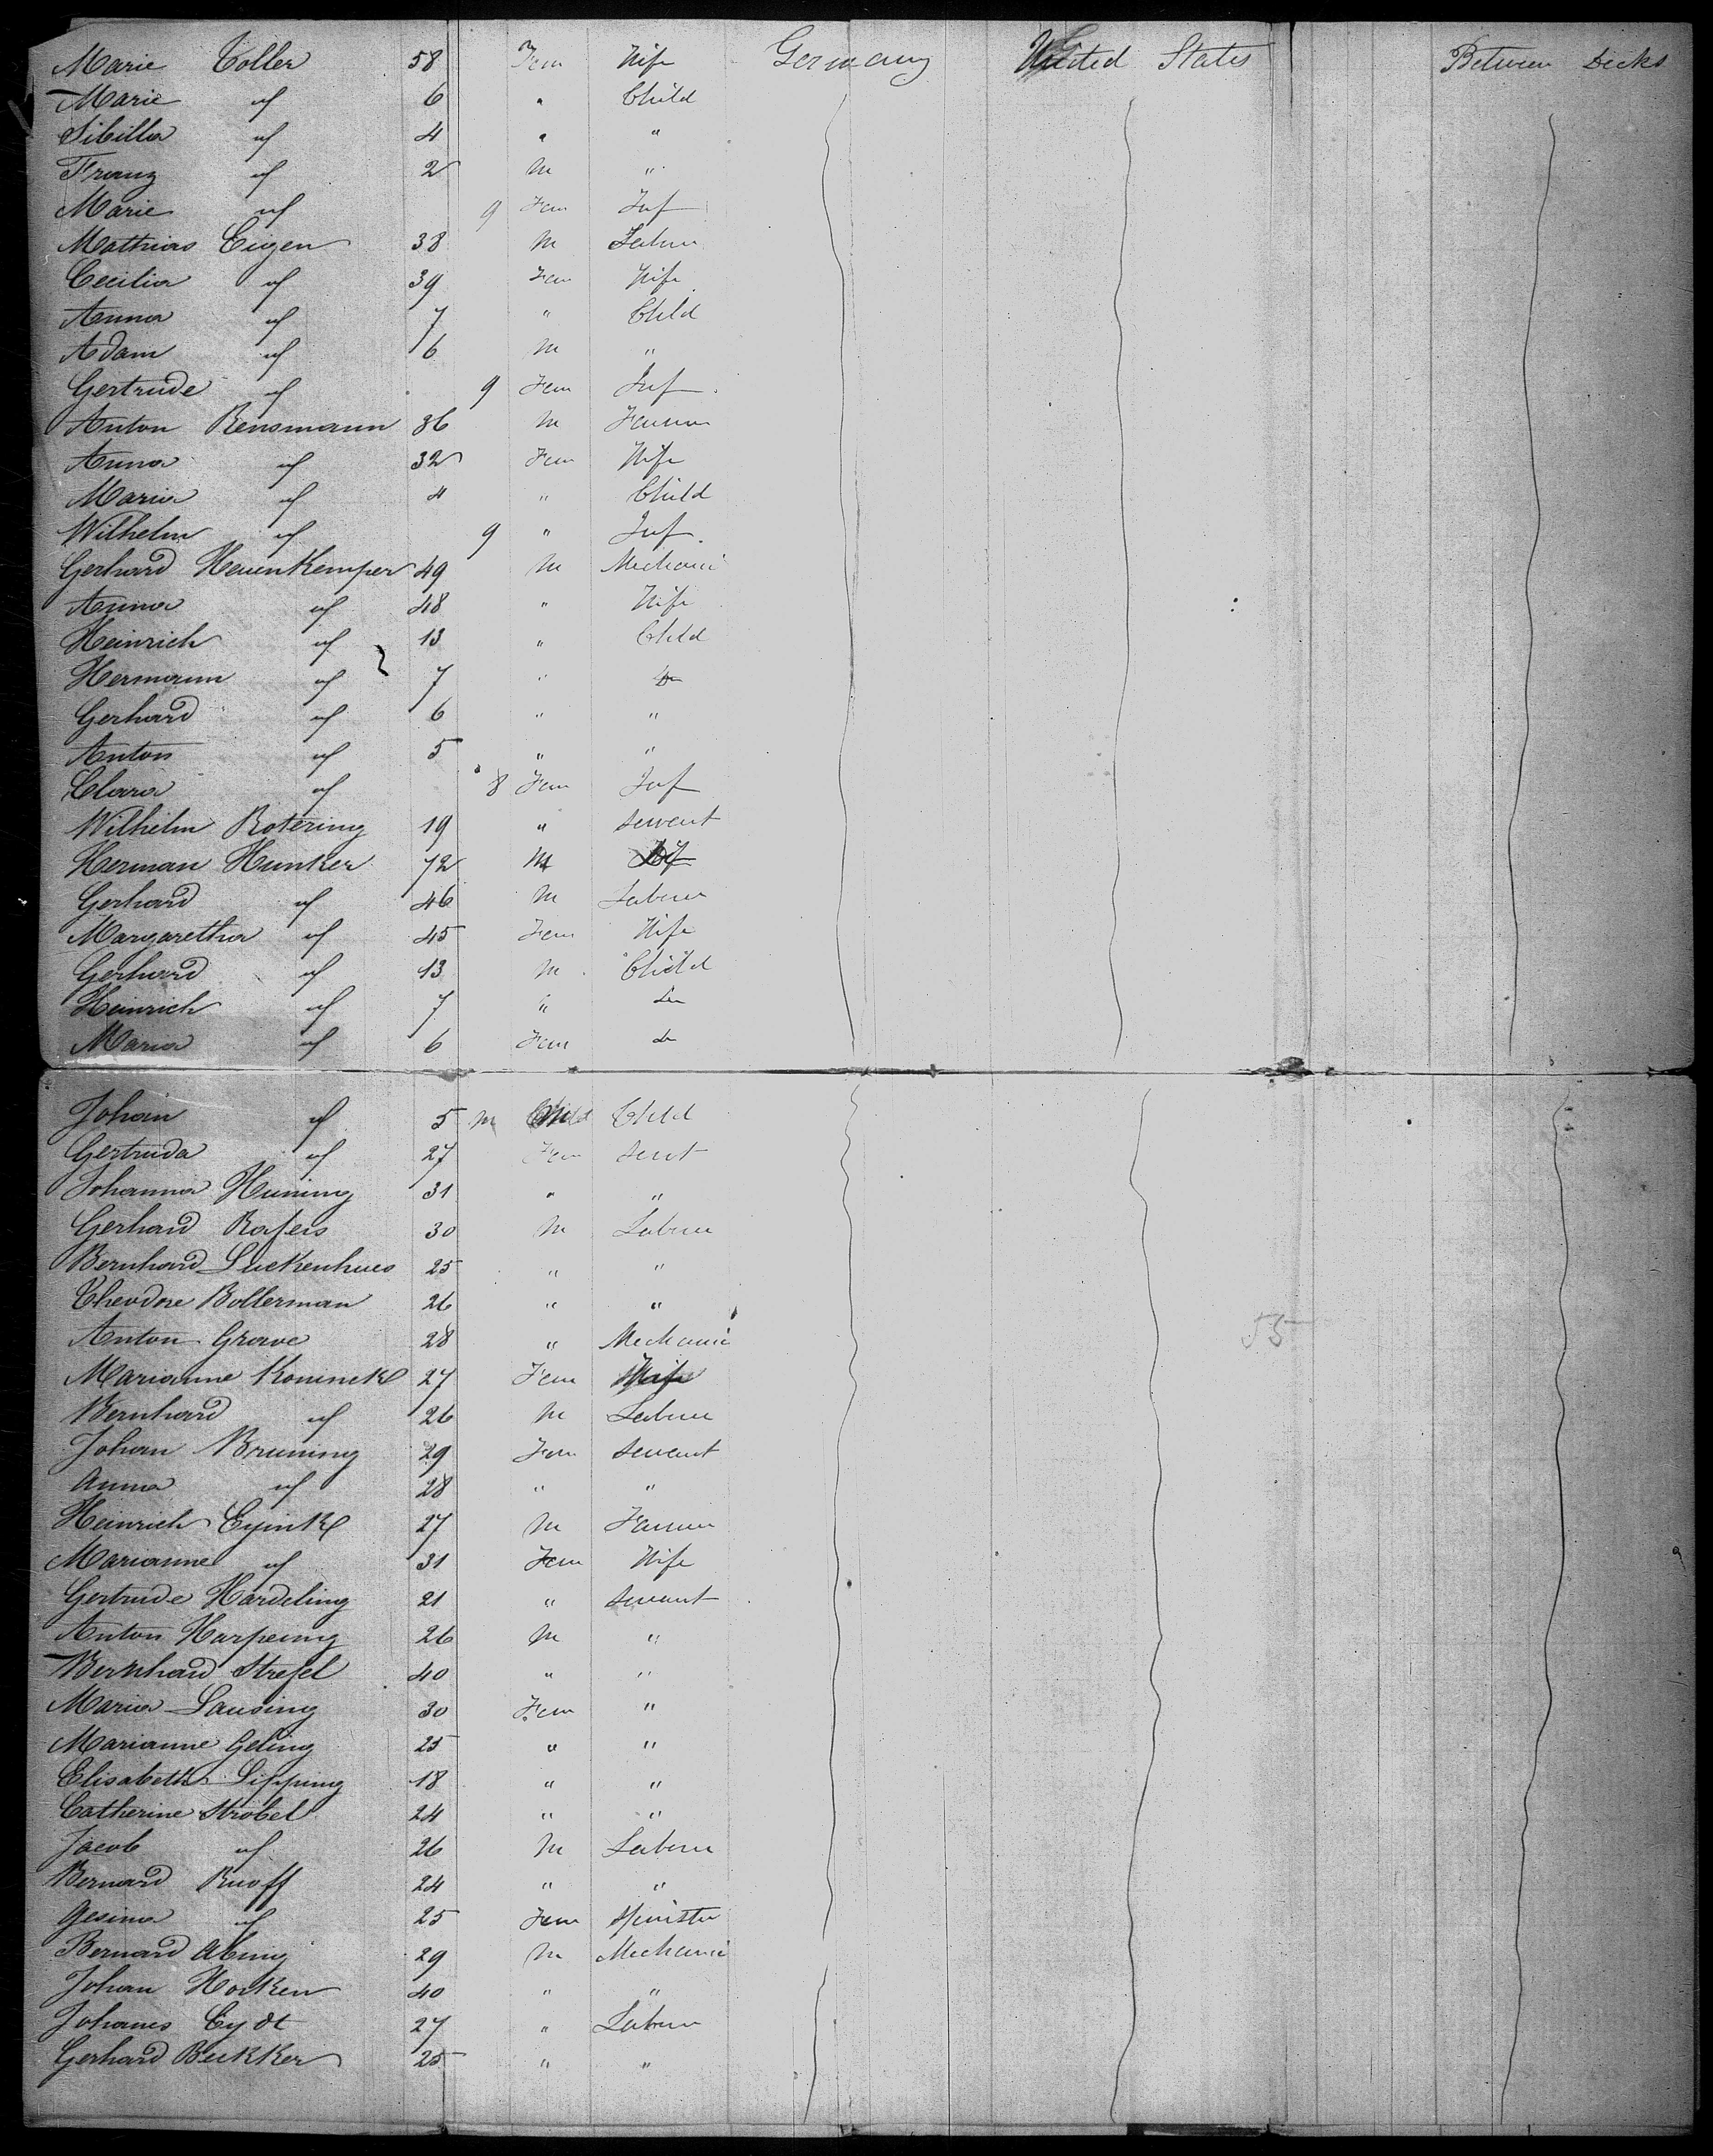 Marie Toller 58 Fem Wife Germany United States Between Decks
Marie " 6 " Child
Sibilla " 4 " "
Franz " 2 M "
Marie " 9 Fem Inf
Mathias Eigen 38 M Labour
Cecilia " 39 Fem Wife
Anna " 7 " Child
Adam " 6 M "
Gertrude " 9 Fem Inf
Anton Rensmann 36 M Farmer
Anna " 32 Fem Wife
Maria " 4 " Child
Wilhelm " 9 " Inf.
Gerhard HeuenKemper 49 M Mechanic
Anna " 48 " Wife
Heinrich " 13 " Child
Hermann " 7 " Do
Gerhard " 6 " "
Anton " 5 " "
Clara " 8 Fem Inf
Wilhelm Rotering 19 " Servent
Herman Hunker 72 M
Gerhard " 46 M Labour
Margaretha " 45 Fem Wife
Gerhard " 13 M Child
Heinrich " 7 " Do
Maria " 6 Fem Do
Johan " 5 M Child
Gertruda " 27 Fem Servt
Johanna Huning 31 " "
Gerhard Rafers 30 M Labour
Bernhard Luckenhues 25 " "
Theodore Bollerman 26 " "
Anton Grave 28 " Mechanic
55
Marianne Koninck 27 Fem Wife
Bernhard " 26 M Labour
Johan Bruning 29 Fem Servant
Anna " 28 " "
Heinrich Eyink 27 M Farmer
Marianne " 31 Fem Wife
Gertrude Hardeling 21 " Servant
Anton Harpering 26 M "
Bernhard Strefel 40 " "
Maria Lansing 30 Fem "
Marianne Geling 25 " "
Elisabeth Lipping 18 " "
Catherine Strobel 24 " "
Jacob " 26 M Labour
Bernard Ruoff 24 " "
Gesina " 25 Fem Spinster
Bernard Abing 29 M Mechanic
Johan Horken 40 " "
Johanes Eydt 27 " Labour
Gerhard Bekker 25 " "